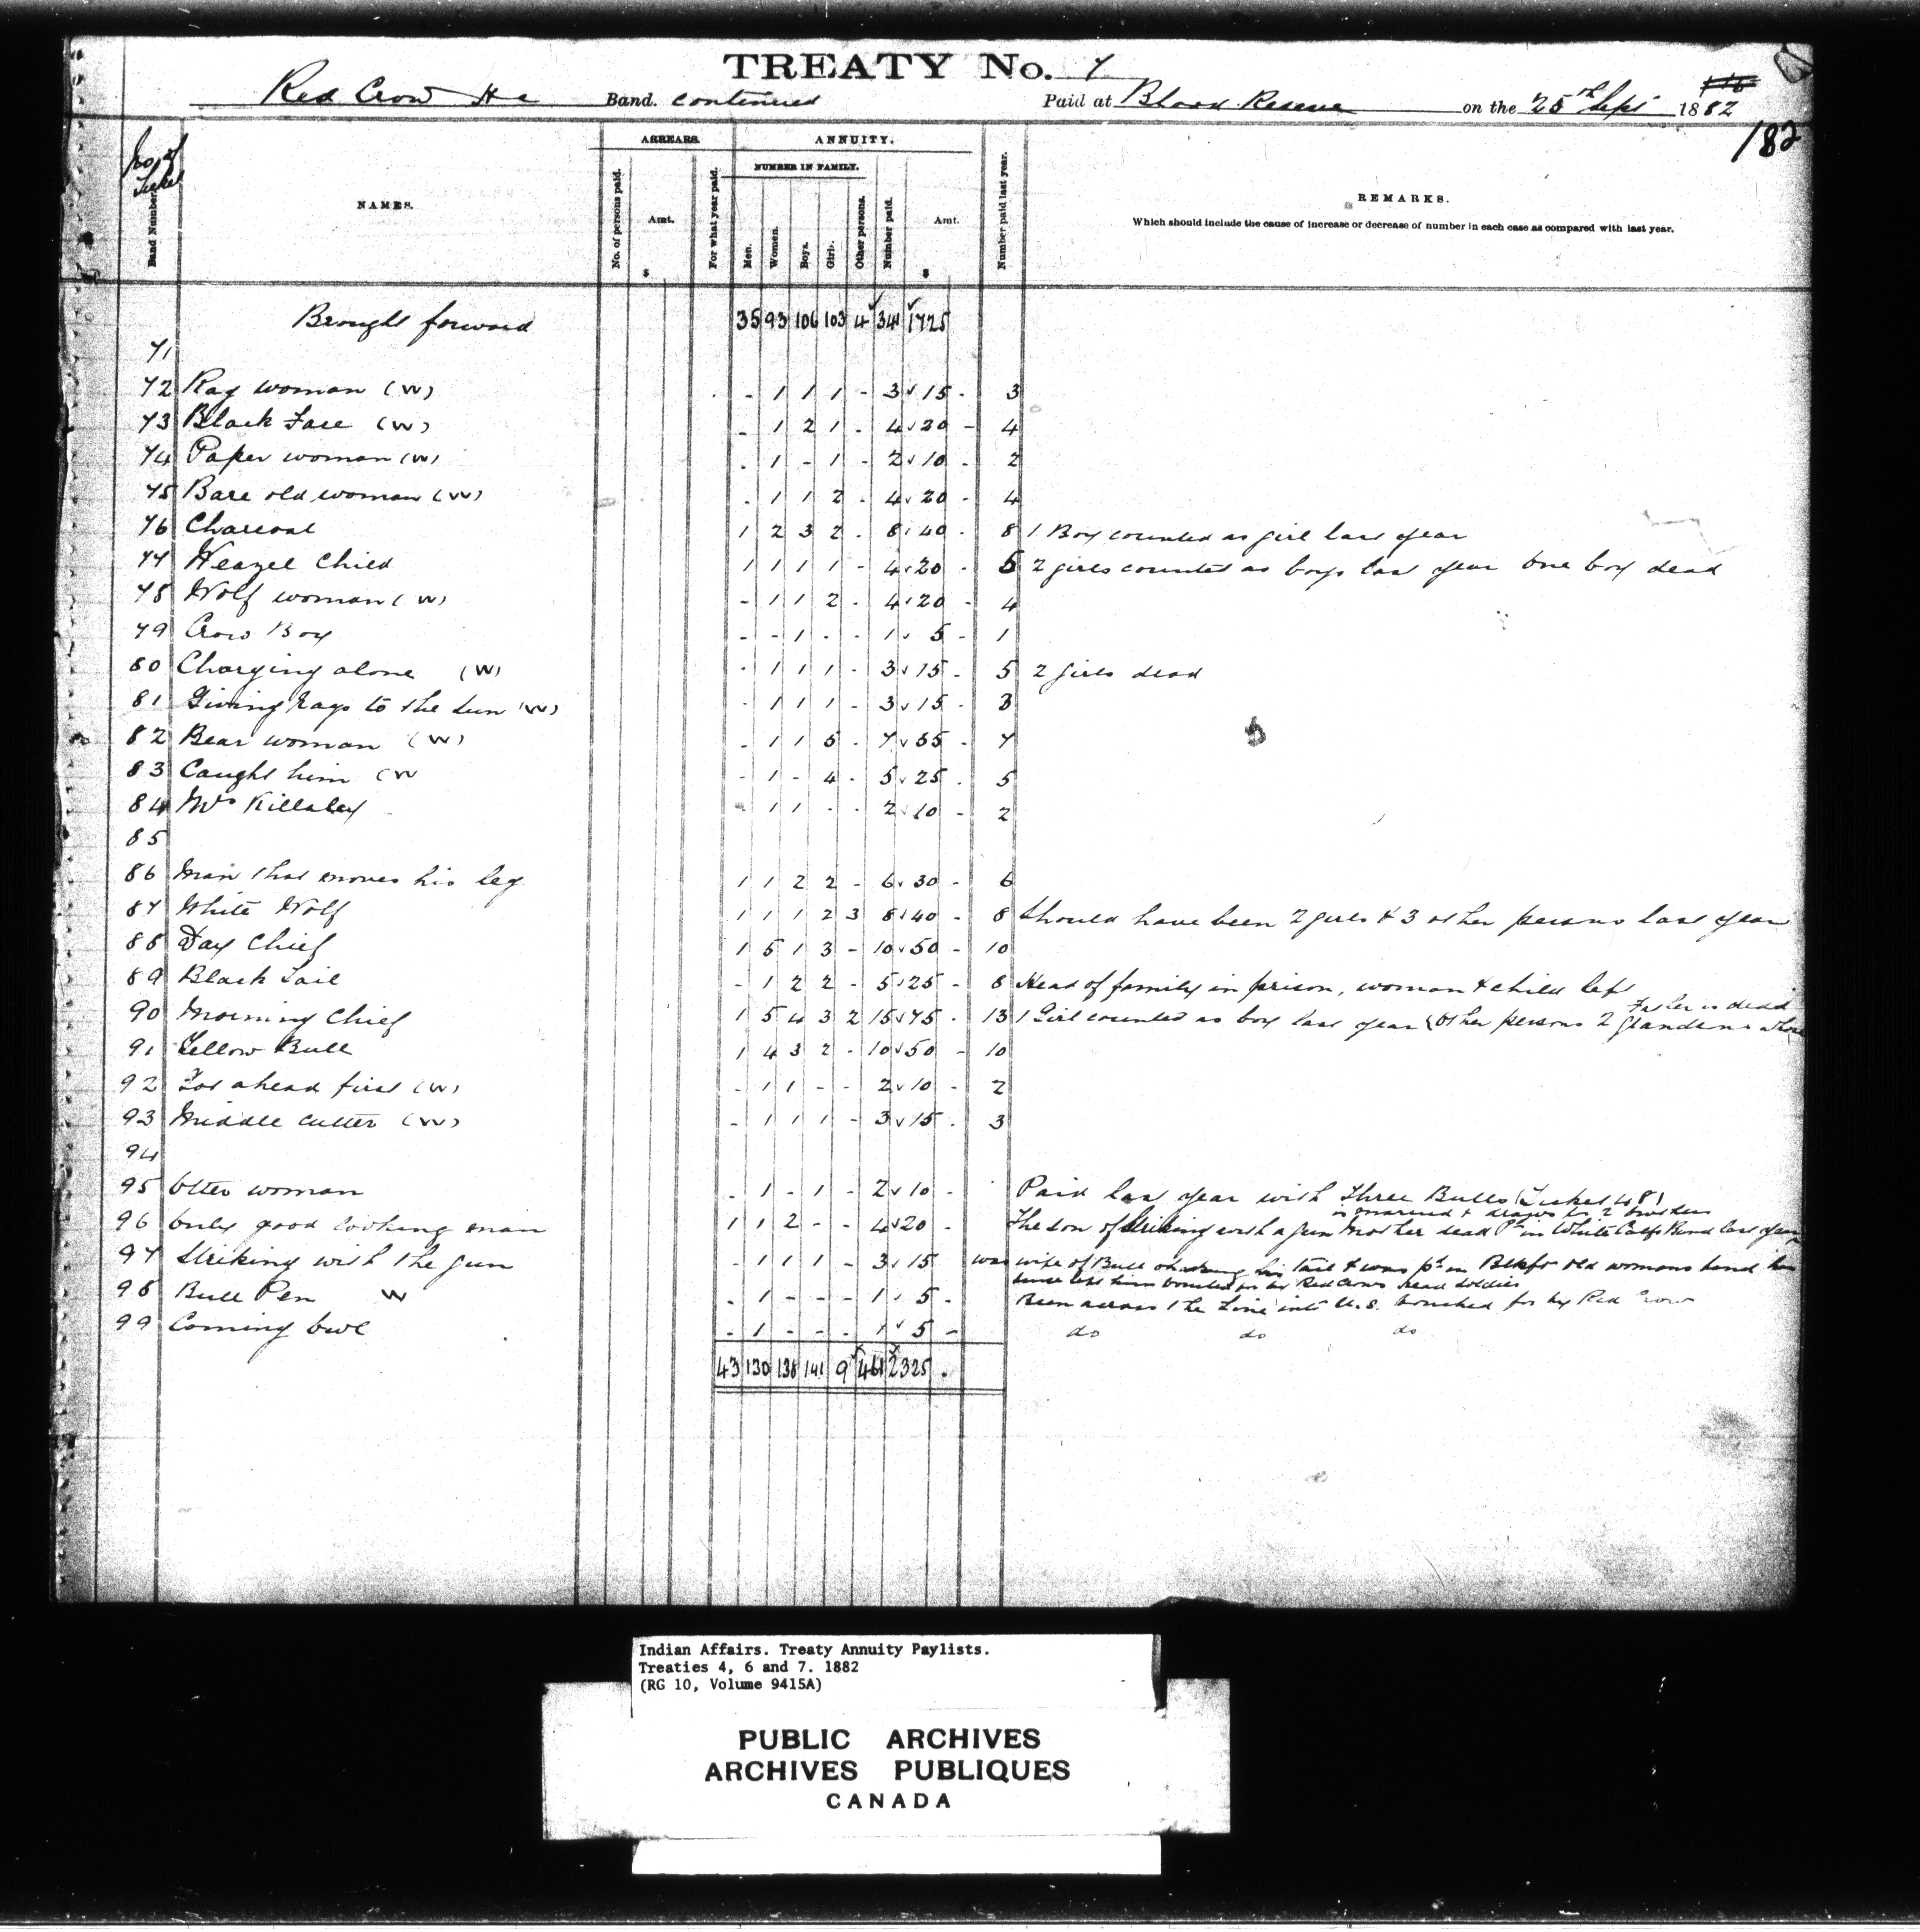 TREATY No. 7
Red Crow H c Band. continued Paid at Blood Reserve on the 25th Sept 1882
182
No. of Ticket
Band Number
NAMES.
ARREARS.
No. of persons paid.
Amt.
$
For what year paid.
ANNUITY.
NUMBER IN FAMILY.
Men.
Women.
Boys.
Girls.
Other persons.
Number paid.
Amt.
$
Number paid last year.
REMARKS.
Which should include the cause of increase or decrease of number in each case as compared with last year.
Brought forward 35 93 106 103 4 341 1725
71
72 Rag woman (W) - 1 1 1 - 3 15 - 3
73 Black Face (W) - 1 2 1 - 4 20 - 4
74 Paper woman (W) - 1 - 1 - 2 10 - 2
75 Bare old woman (W) - 1 1 2 - 4 20 - 4
76 Charcoal 1 2 3 2 - 8 40 - 8 1 Boy counted as girl last year
77 Weazel Child 1 1 1 1 - 4 20 - 5 2 girls counted as boys last year one boy dead
78 Wolf woman (W) - 1 1 2 - 4 20 - 4
79 Crow Boy - - 1 - - 1 5 - 1
80 Charging alone (W) - 1 1 1 - 3 15 - 5 2 girls dead
81 Giving rags to the Sun (W) - 1 1 1 - 3 15 - 3
82 Bear woman (W) - 1 1 5 - 7 35 - 7
83 Caught him (W - 1 - 4 - 5 25 - 5
84 Mrs Killaley - 1 1 - - 2 10 - 2
85
86 Man that moves his leg 1 1 2 2 - 6 30 - 6
87 White Wolf 1 1 1 2 3 8 40 - 8 Should have been 2 girls & 3 other persons last year
88 Day Chief 1 5 1 3 - 10 50 - 10
89 Black Tail - 1 2 2 - 5 25 - 8 Head of family in prison, woman & child left
90 Morning Chief 1 5 4 3 2 15 75 - 13 1 Girl counted as boy last year (Other persons 2
Father is dead
91 Yellow Bull 1 4 3 2 - 10 50 - 10
92 ahead first (W) - 1 1 - - 2 10 - 2
93 Middle cutter (W) - 1 1 1 - 3 15 - 3
94
95 Otter woman - 1 - 1 - 2 10 - Paid last year with Three Bulls (Ticket 48)
is married & draws for 2
96 Only good looking man 1 1 2 - - 4 20 - The son of Striking with a gun Mother dead Pd in White Calfs Band last year
97 Striking with the gun - 1 1 1 - 3 15 was wife of Bull his tail & was pd in Blkft old womans band has
since left him vouched for by Red Crows head soldier
98 Bull Pen W - 1 - - - 1 5 - Been across the Line into U.S. vouched for by Red Crow
99 Coming Owl - 1 - - - 1 5 - do do do
43 130 138 141 9 461 2325
Indian Affairs. Treaty Annuity Paylists.
Treaties 4, 6 and 7. 1882
(RG 10, Volume 9415A)
PUBLIC ARCHIVES
ARCHIVES PUBLIQUES
CANADA